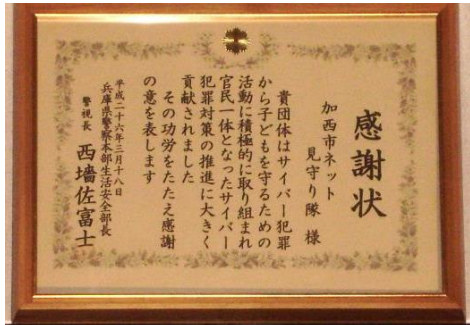 感謝状
加西市ネット
見守り隊 様
貴団体はサイバー犯罪
から子どもを守るための
活動に積極的に取り組まれ
官民一体となったサイバー
犯罪対策の推進に大きく
貢献されました
その功労をたたえ感謝
の意を表します
平成二十六年三月十八日
兵庫県警察本部生活安全部長
警視長 西墻佐富士